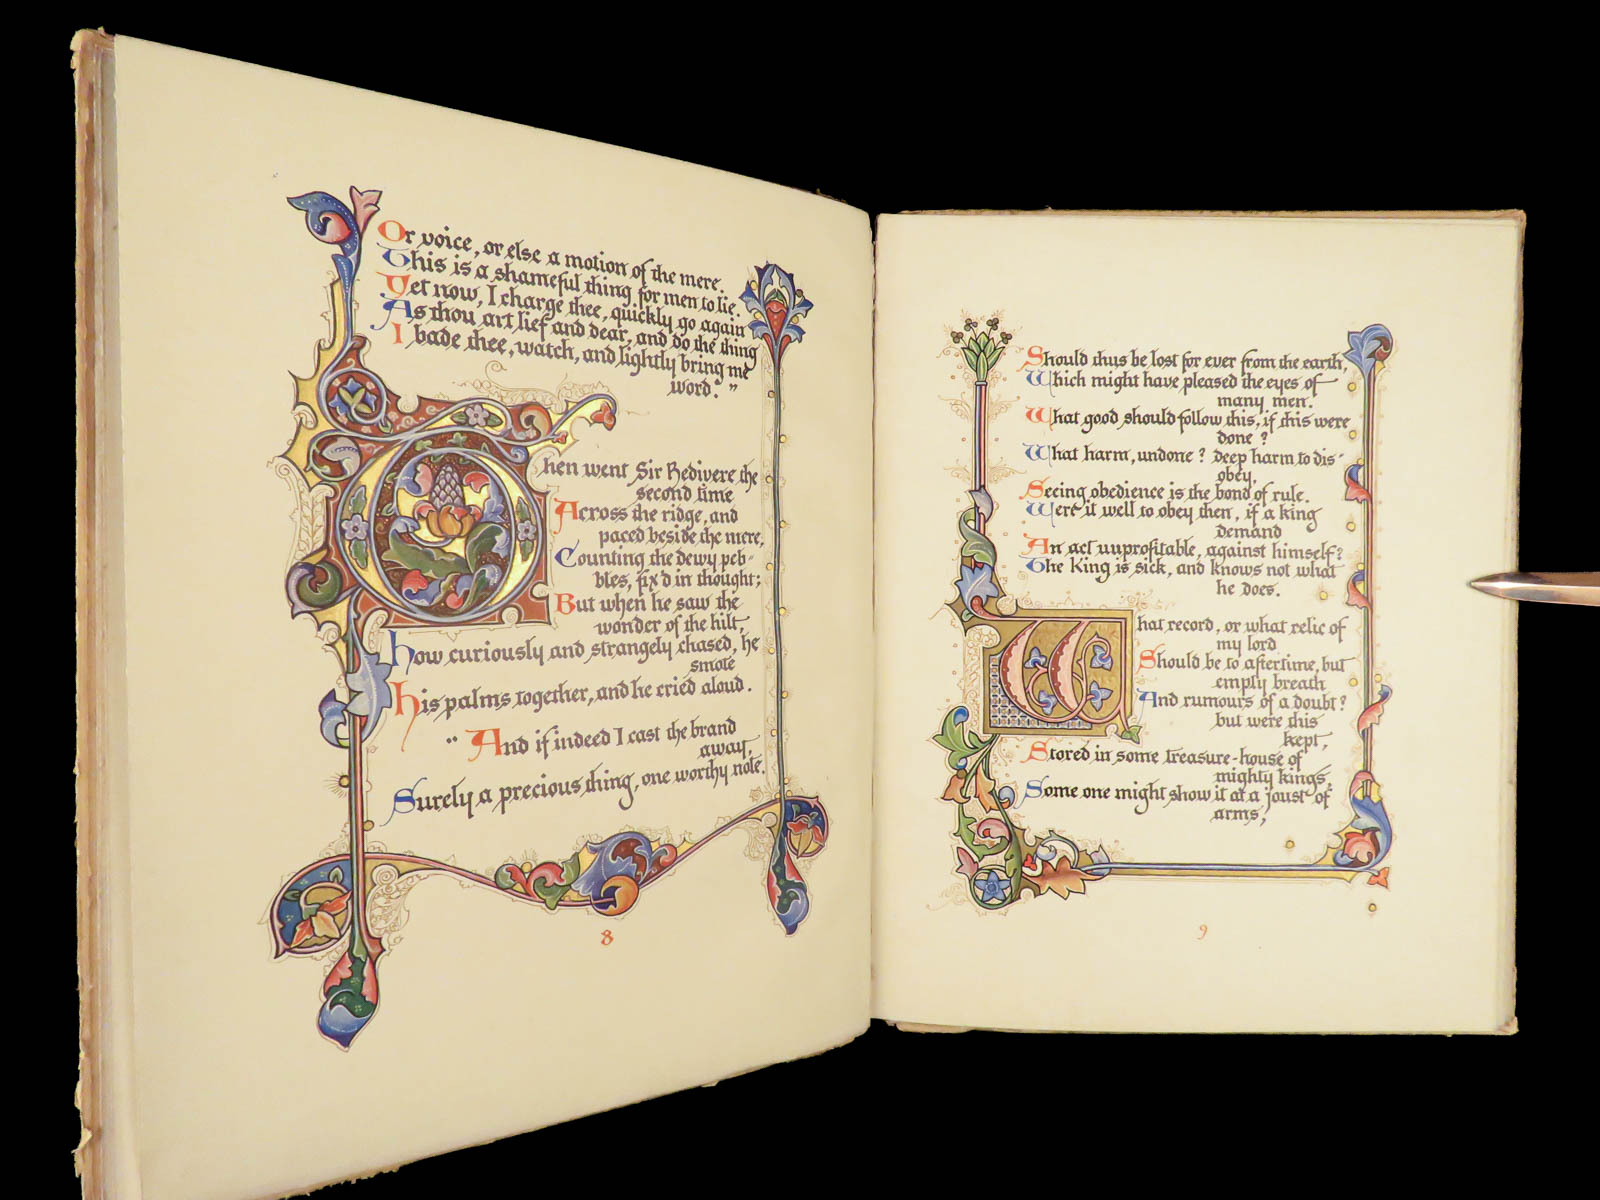 Or voice, or else a motion of the mere.
This is a shameful thing for men to lie.
Yet now, I charge thee, quickly go again
As thou art lief and dear, and do the thing
I bade thee, watch, and lightly bring me
word."
Then went Sir Bedivere the
second time
Across the ridge, and
paced beside the mere,
Counting the dewy peb-
bles, fix'd in thought;
But when he saw the
wonder of the hilt,
How curiously and strangely chased, he
smote
His palms together, and he cried aloud.
"And if indeed I cast the brand
away,
Surely a precious thing, one worthy note.
8
Should thus be lost for ever from the earth,
Which might have pleased the eyes of
many men.
What good should follow this, if this were
done?
What harm, undone? deep harm to dis-
obey,
Seeing obedience is the bond of rule.
Were it well to obey then, if a king
demand
An act unprofitable, against himself?
The King is sick, and knows not what
he does.
What record, or what relic of
my lord
Should be to aftertime, but
empty breath
And rumours of a doubt?
but were this
kept,
Stored in some treasure-house of
mighty kings,
Some one might show it at a joust of
arms,
9